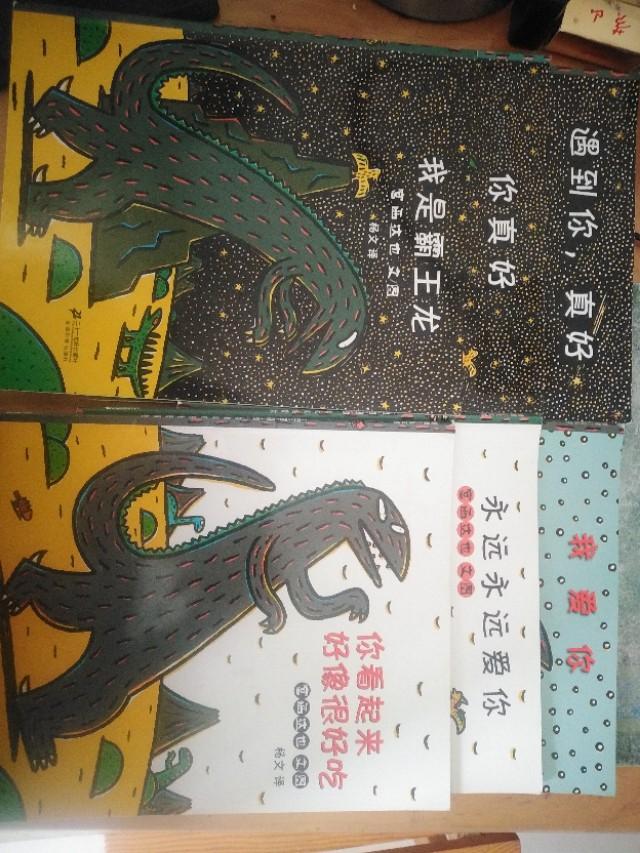 遇到你，真好
你真好
我是霸王龙
宫西达也 文图
杨文 译
我爱你
永远永远爱你
宫西达也 文图
你看起来
好像很好吃
宫西达也 文图
杨文 译